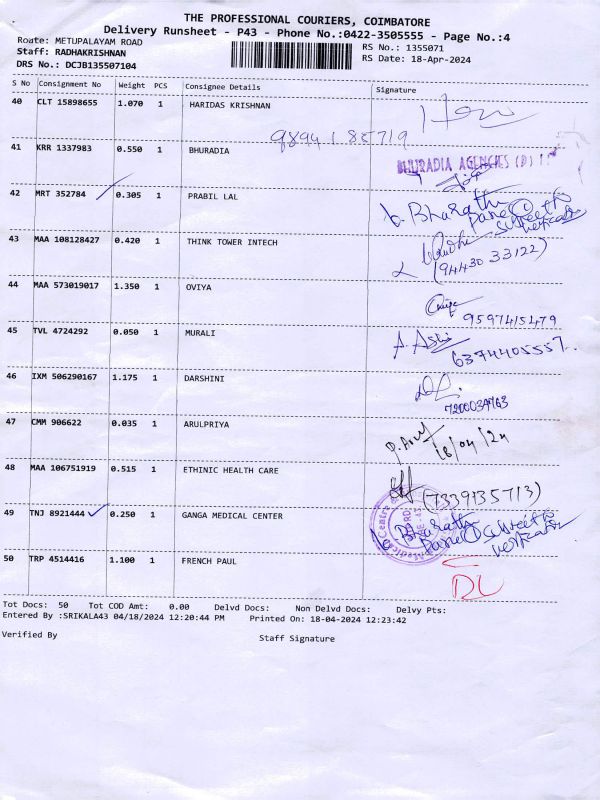 THE PROFESSIONAL COURIERS, COIMBATORE
Delivery Runsheet - P43 - Phone No.:0422-3505555 - Page No.:4
Route: METUPALAYAM ROAD
RS No.: 1355071
Staff: RADHAKRISHNAN
RS Date: 18-Apr-2024
DRS No.: DCJB135507104
S No Consignment No Weight PCS Consignee Details Signature
40 CLT 15898655 1.070 1 HARIDAS KRISHNAN
98941 85719
41 KRR 1337983 0.550 1 BHURADIA
BHURADIA AGENCIES (P)
42 MRT 352784 0.305 1 PRABIL LAL
b. Bharathi
43 MAA 108128427 0.420 1 THINK TOWER INTECH
(94430 33122)
44 MAA 573019017 1.350 1 OVIYA
9597415479
45 TVL 4724292 0.050 1 MURALI
6374405557
46 IXM 506290167 1.175 1 DARSHINI
7200034763
47 CMM 906622 0.035 1 ARULPRIYA
18/04/24
48 MAA 106751919 0.515 1 ETHINIC HEALTH CARE
(7339135713)
49 TNJ 8921444 0.250 1 GANGA MEDICAL CENTER
b. Bharathi
50 TRP 4514416 1.100 1 FRENCH PAUL
DL
Tot Docs: 50 Tot COD Amt: 0.00 Delvd Docs: Non Delvd Docs: Delvy Pts:
Entered By :SRIKALA43 04/18/2024 12:20:44 PM Printed On: 18-04-2024 12:23:42
Verified By Staff Signature